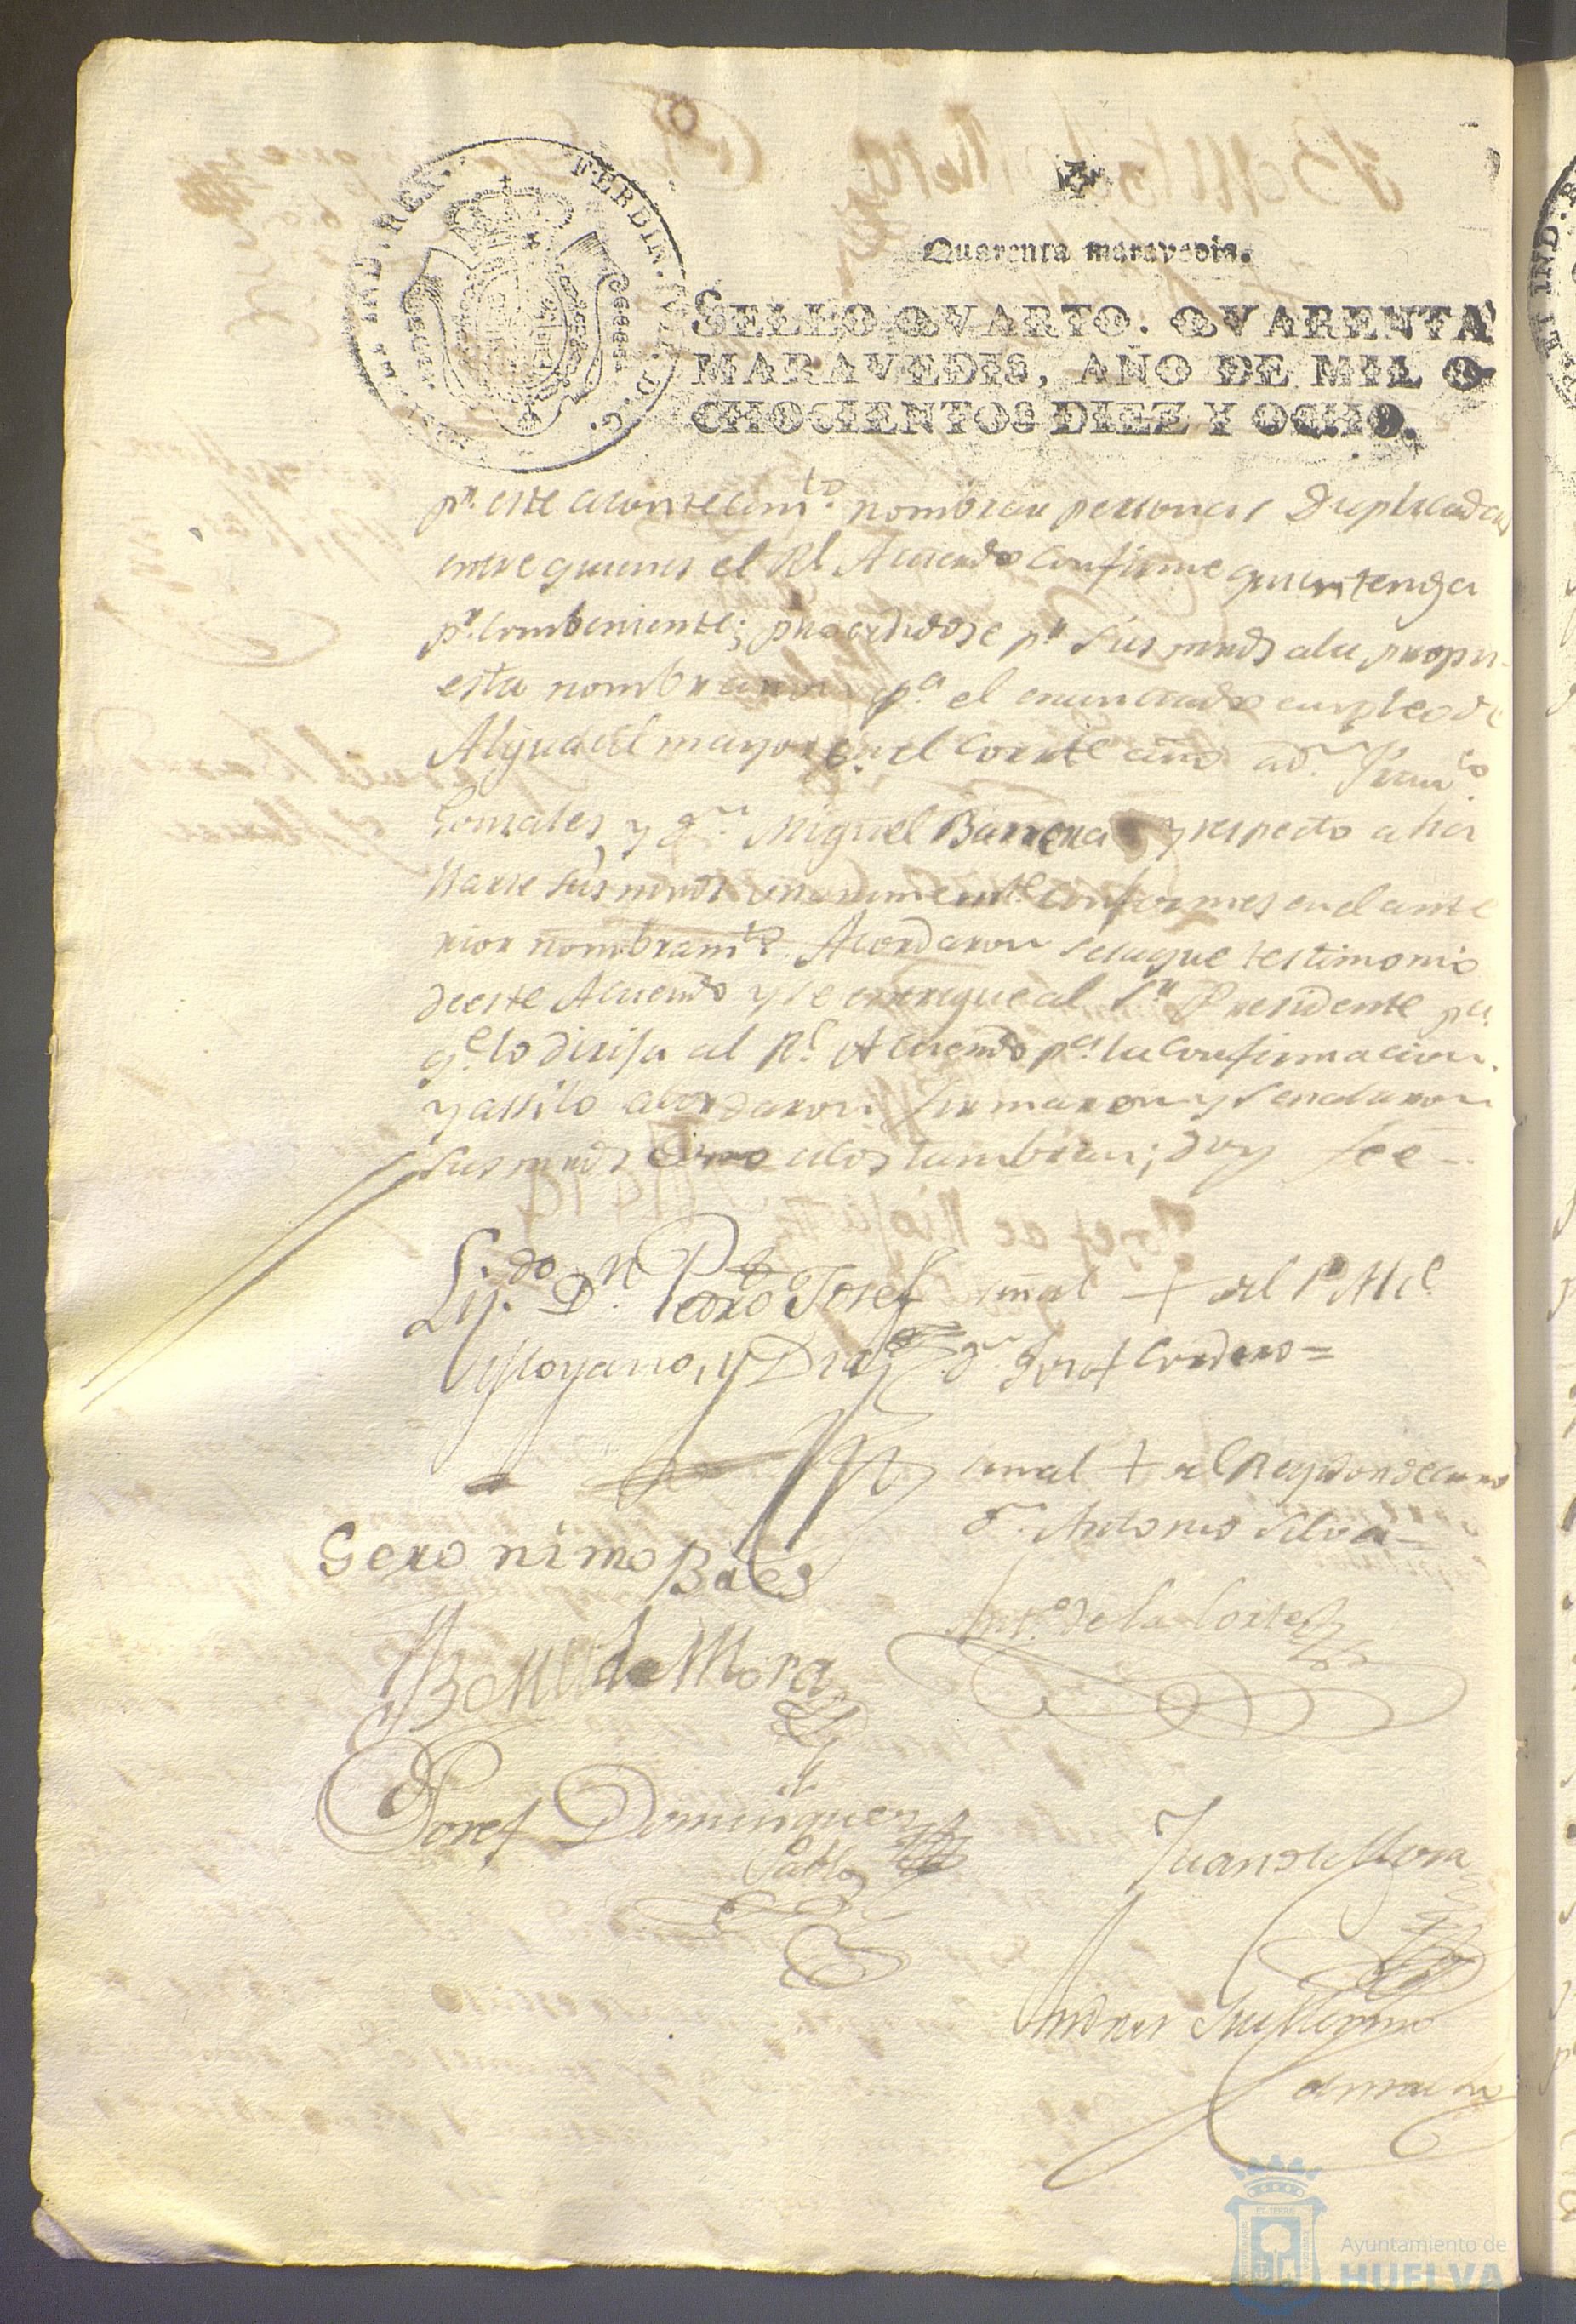 HISP. ET IND. REX. FERDIN. VII. D. G.
Quarenta maravedis.
SELLO QVARTO. QVARENTA
MARAVEDIS, AÑO DE MIL O-
CHOCIENTOS DIEZ Y OCHO.
pr. este acontecimto. nombrar personas Duplicadas
entre quienes el Rl. Acuerdo confirme quien tenga
pr. combeniente; procedidose pr. sus mrds ala propu-
esta nombraron pa. el enunciado empleo de
Alguacil mayor en el corrte. año a Dn. Franco.
Gonsales y Dn. Miguel Barrera y respecto a ha
llarse sus mrds unanimemte. conformes en el ante
rior nombramto. Acordaron se saque testimonio
de este Acuerdo y se entregue al Sr. Presidente pa.
qe. lo dirija al Rl. Acuerdo pa. la confirmacion.
y assi lo acordaron firmaron y señalaron
sus mrds como acostumbran; doy fee-
Lizdo. Dn. Pedro Josef
Moyano, y Dias
señal + del Sr. Alcl.
Dn. Josef Cordero=
señal + del Regidor decano
Dn. Antonio Silva-
Geronimo Báes
Anto. de la Corte
de Mora
Josef Dominguez
Pablo
Juan de Mora
Andres Guillermo
Camacho
Ayuntamiento de
HUELVA